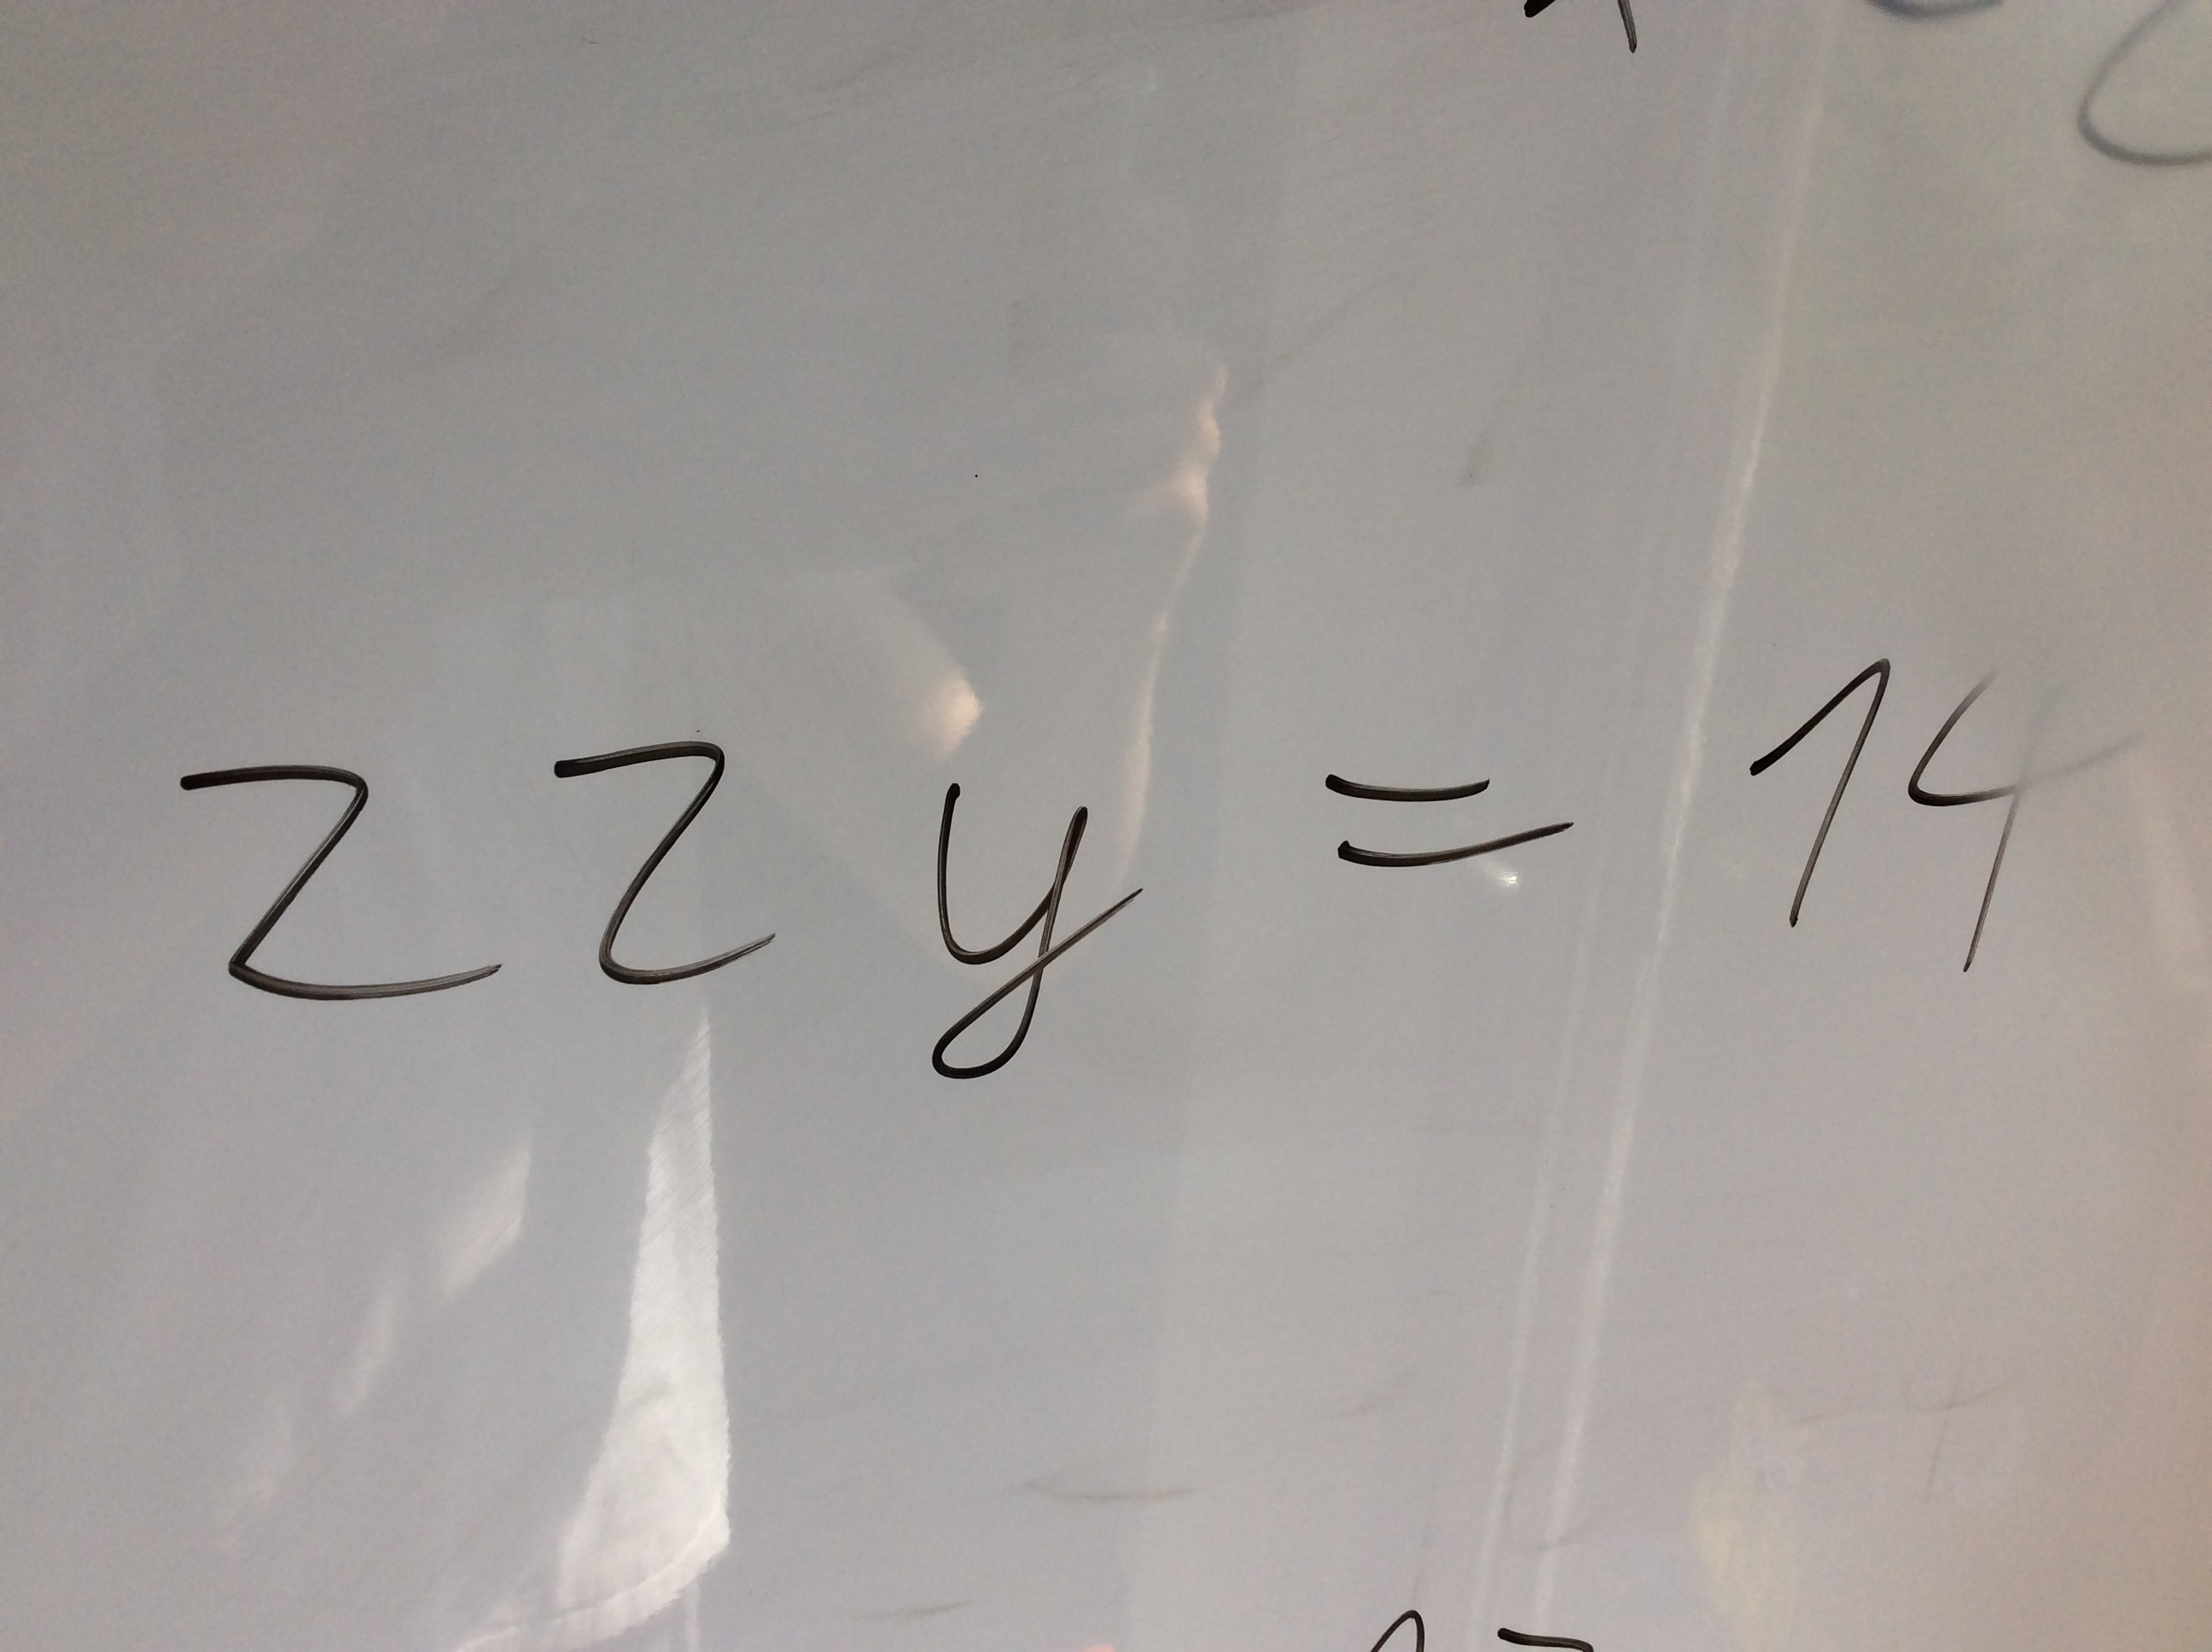 22y = 14